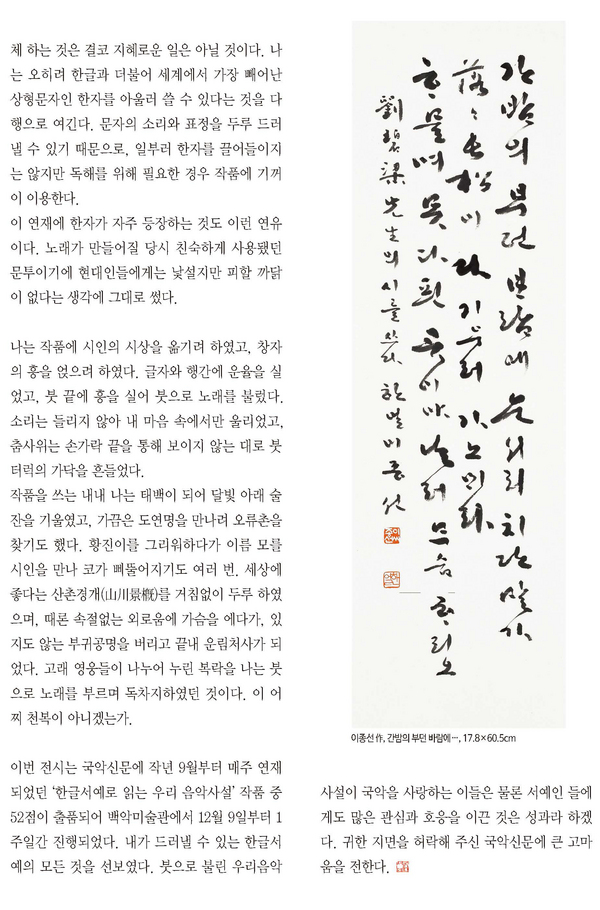 체 하는 것은 결코 지혜로운 일은 아닐 것이다. 나
는 오히려 한글과 더불어 세계에서 가장 빼어난
상형문자인 한자를 아울러 쓸 수 있다는 것을 다
행으로 여긴다. 문자의 소리와 표정을 두루 드러
낼 수 있기 때문으로, 일부러 한자를 끌어들이지
는 않지만 독해를 위해 필요한 경우 작품에 기꺼
이 이용한다.
이 연재에 한자가 자주 등장하는 것도 이런 연유
이다. 노래가 만들어질 당시 친숙하게 사용됐던
문투이기에 현대인들에게는 낯설지만 피할 까닭
이 없다는 생각에 그대로 썼다.
나는 작품에 시인의 시상을 옮기려 하였고, 창자
의 흥을 얹으려 하였다. 글자와 행간에 운율을 실
었고, 붓 끝에 흥을 실어 붓으로 노래를 불렀다.
소리는 들리지 않아 내 마음 속에서만 울리었고,
춤사위는 손가락 끝을 통해 보이지 않는 대로 붓
터럭의 가닥을 흔들었다.
작품을 쓰는 내내 나는 태백이 되어 달빛 아래 술
잔을 기울였고, 가끔은 도연명을 만나려 오류촌을
찾기도 했다. 황진이를 그리워하다가 이름 모를
시인을 만나 코가 삐뚤어지기도 여러 번. 세상에
좋다는 산촌경개(山川景槪)를 거침없이 두루 하였
으며, 때론 속절없는 외로움에 가슴을 에다가, 있
지도 않는 부귀공명을 버리고 끝내 운림처사가 되
었다. 고래 영웅들이 나누어 누린 복락을 나는 붓
으로 노래를 부르며 독차지하였던 것이다. 이 어
찌 천복이 아니겠는가.
이번 전시는 국악신문에 작년 9월부터 매주 연재
되었던 ‘한글서예로 읽는 우리 음악사설’ 작품 중
52점이 출품되어 백악미술관에서 12월 9일부터 1
주일간 진행되었다. 내가 드러낼 수 있는 한글서
예의 모든 것을 선보였다. 붓으로 불린 우리음악
간밤의 부던 ᄇᆞ람에 눈서리 치단말가
落〻長松이 다 기우러 가노ᄆᆡ라
ᄒᆞ물며 못다 핀 곳이야 닐러 므슴 ᄒᆞ리오
劉碧梁先生의 시를 쓰다 한얼 이종선
이종선 作, 간밤의 부던 바람에…, 17.8×60.5cm
사설이 국악을 사랑하는 이들은 물론 서예인 들에
게도 많은 관심과 호응을 이끈 것은 성과라 하겠
다. 귀한 지면을 허락해 주신 국악신문에 큰 고마
움을 전한다.